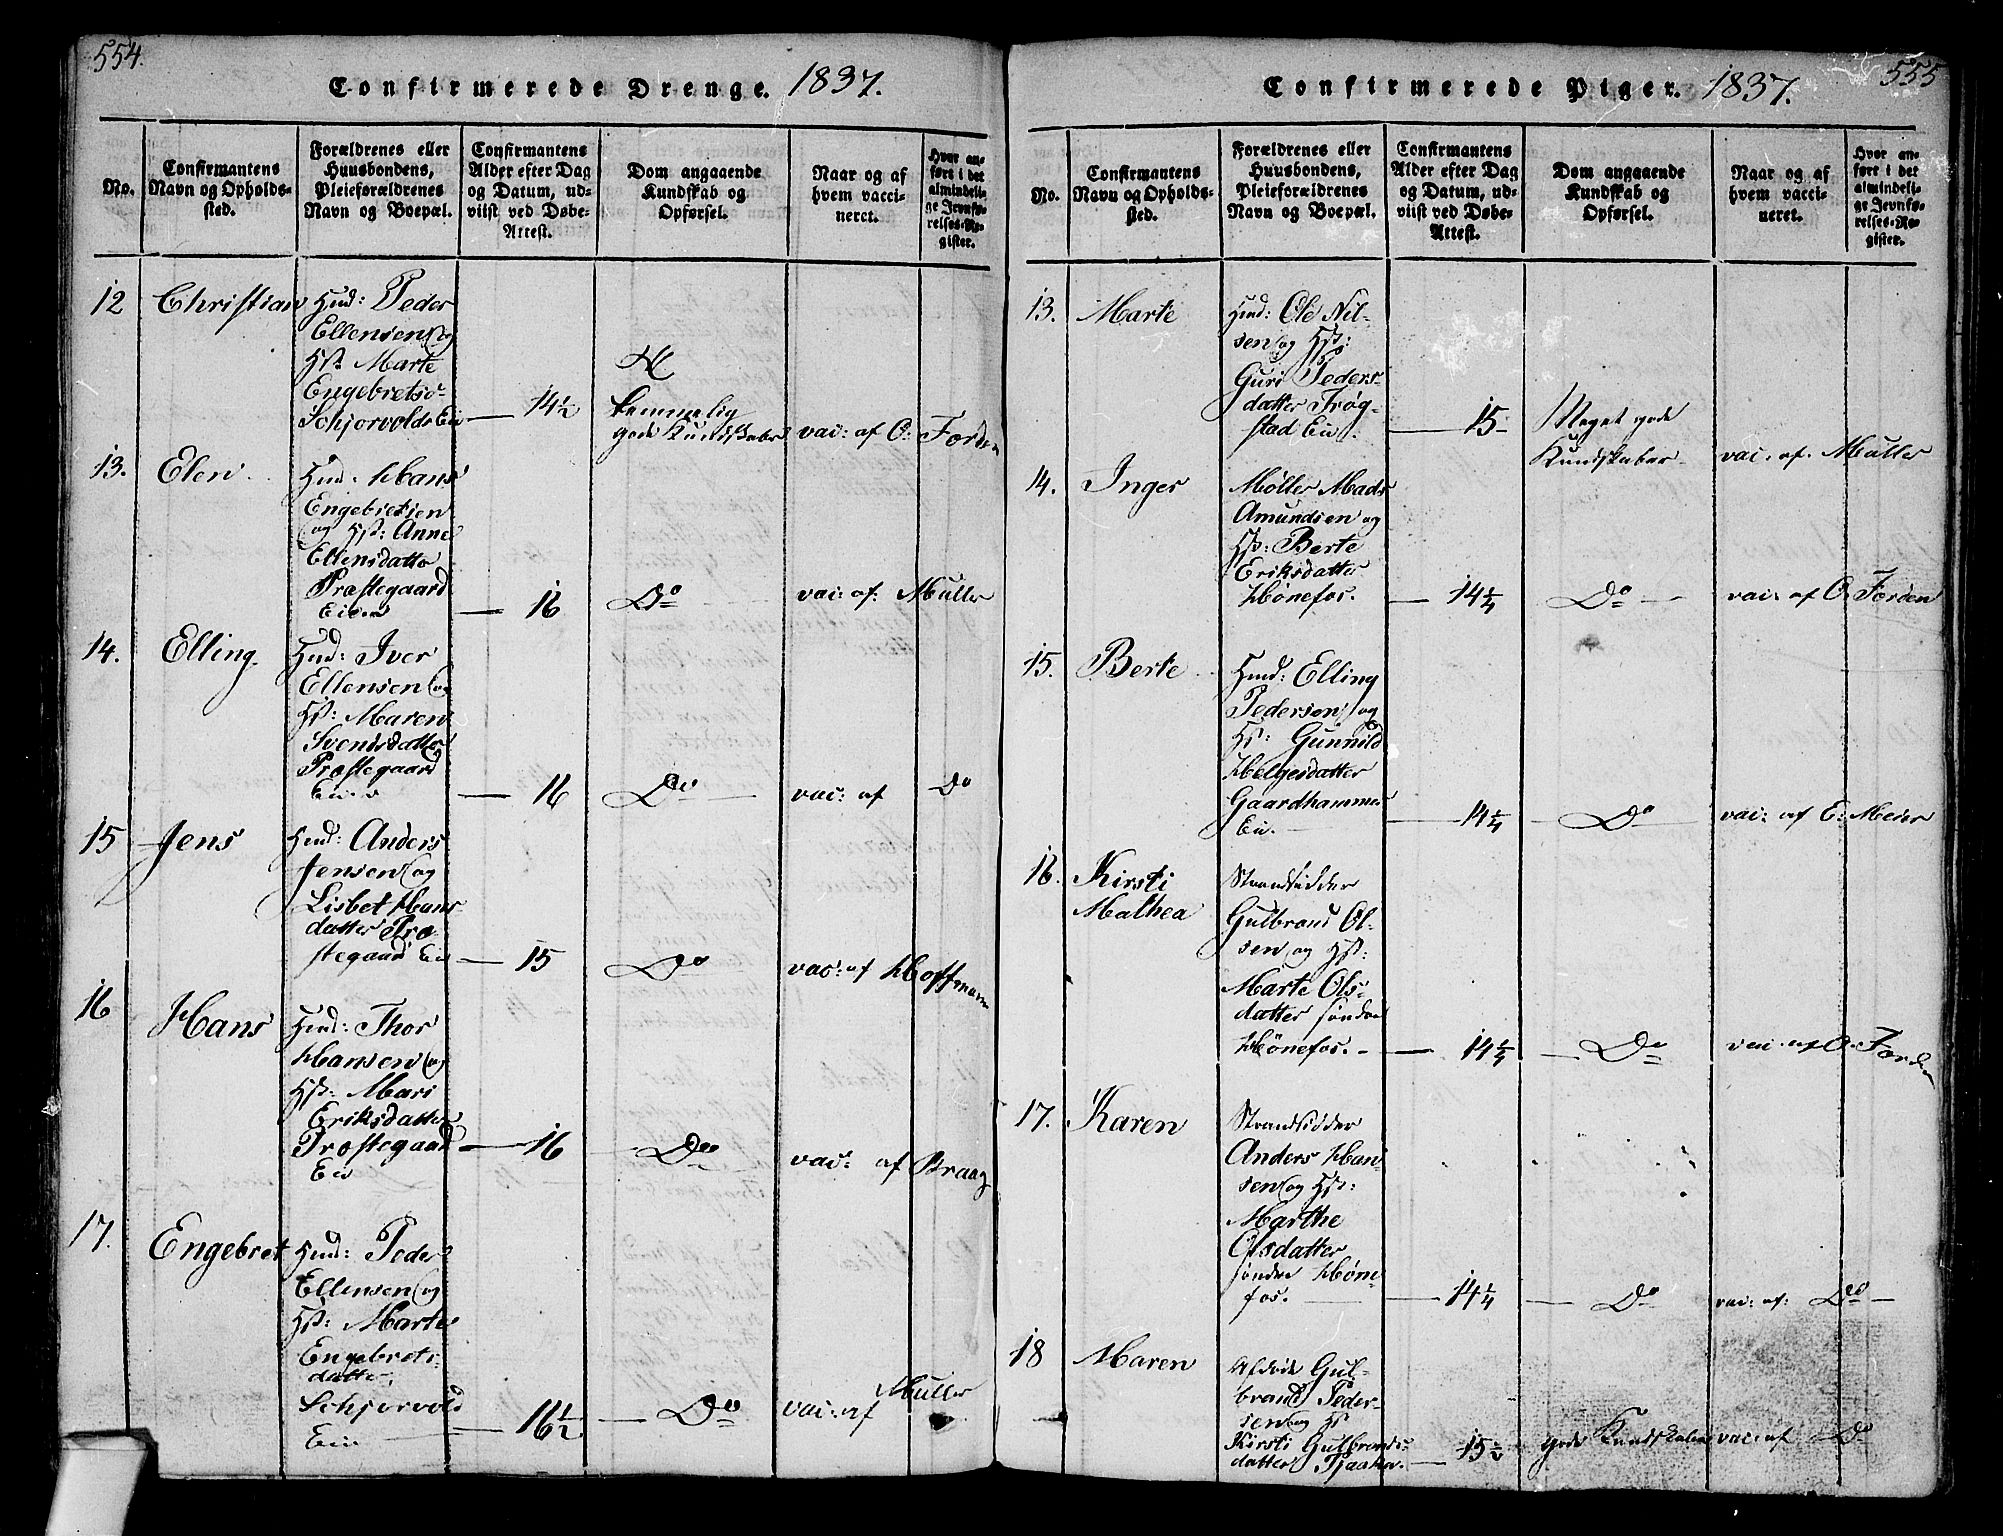 554.
Confirmerede Drenge. 1837.
No.
Confirmantens
Navn og Opholds-
sted.
Forældrenes eller
Huusbondens,
Pleieforældrenes
Navn og Boepæl.
Confirmantens
Alder efter Dag
og Datum, ud-
viist ved Døbe-
Attest.
Dom angaaende
Kundskab og
Opførsel.
Naar og af
hvem vacci-
neret.
Hvor an-
ført i det
almindeli-
ge Jevnfø-
relses-Re-
gister.
12
Christian
Hmd: Peder
Ellensen og
Hst: Marte
Engebretsd
Schjorvolds Eie
14½
temmelig
gode Kundskaber
vac: af O: Forden
13.
Elen
Hmd: Hans
Engebretsen
og Hst: Anne
Ellensdatter
Præstegaard
Eien
16
Do
vac: af: Müller
14.
Elling.
Hmd: Iver
Ellensen og
Hst: Maren
Svendsdatter
Præstegaard
Eien
16
Do
vac: af Do
15
Jens
Hmd: Anders
Jensen og
Lisbet Hans
datter Præ-
stegaard Eie
15
Do
vac: af Hoffmann
16
Hans
Hmd: Thor
Hansen og
Hst: Mari
Eriksdatter
Præstegaard
Eie
16
Do
vac: af Braag
17.
Engebret
Hmd: Peder
Ellensen og
Hst: Marte
Engebrets-
datter,
Schjorvold
Eie
16½
Do
vac: af Müller
555
Confirmerede Piger. 1837.
No.
Confirmantens
Navn og Opholds-
sted.
Forældrenes eller
Huusbondens,
Pleieforældrenes
Navn og Boepæl.
Confirmantens
Alder efter Dag
og Datum, ud-
viist ved Døbe-
Attest.
Dom angaaende
Kundskab og
Opførsel.
Naar og af
hvem vacci-
neret.
Hvor an-
ført i det
almindeli-
ge Jevnfø-
relses-Re-
gister.
13.
Marte
Hmd: Ole Nil-
sen og Hst:
Guri Peders-
datter Trøg-
stad Eie.
15
Meget gode
Kundskaber
vac: af: Müller
14.
Inger
Møller Mads
Amundsen og
Hst: Berte
Eriksdatter
Hønefos.
14¼
Do
vac: af O. Forden
15.
Berte
Hmd: Elling
Pedersen og
Hst: Gunnild
Helgesdatter
Gaardhammer
Eie.
14¼
Do
vac: af E: Meier
16.
Kirsti
Mathea
Strandsidder
Gulbrand Ol-
sen og Hst:
Marte Ols-
datter søndre
Hønefos.
14¼
Do
vac: af O. Forden
17.
Karen
Strandsidder
Anders Han-
sen og Hst:
Marthe
Olsdatter
søndre Høne-
fos.
14¼
Do
vac: af: Do
18
Maren
Afdøde Gul-
brand Peder-
sen og Hst
Kirsti Gulbrands-
datter
15½
gode Kundskaber
vac: af Do